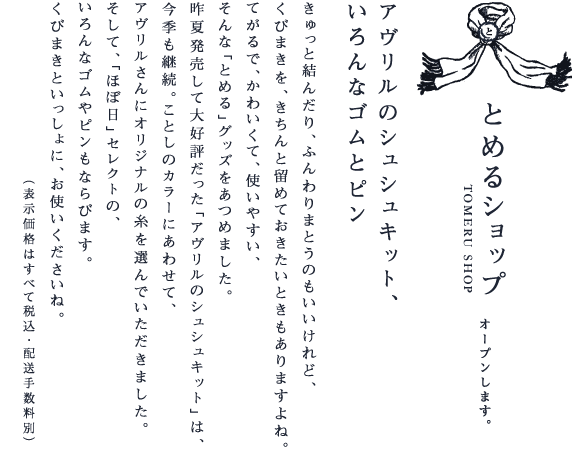 と
とめるショップ
TOMERU SHOP
オープンします。
アヴリルのシュシュキット、
いろんなゴムとピン
きゅっと結んだり、ふんわりまとうのもいいけれど、
くびまきを、きちんと留めておきたいときもありますよね。
てがるで、かわいくて、使いやすい、
そんな「とめる」グッズをあつめました。
昨夏発売して大好評だった「アヴリルのシュシュキット」は、
今季も継続。ことしのカラーにあわせて、
アヴリルさんにオリジナルの糸を選んでいただきました。
そして、「ほぼ日」セレクトの、
いろんなゴムやピンもならびます。
くびまきといっしょに、お使いくださいね。
(表示価格はすべて税込・配送手数料別)